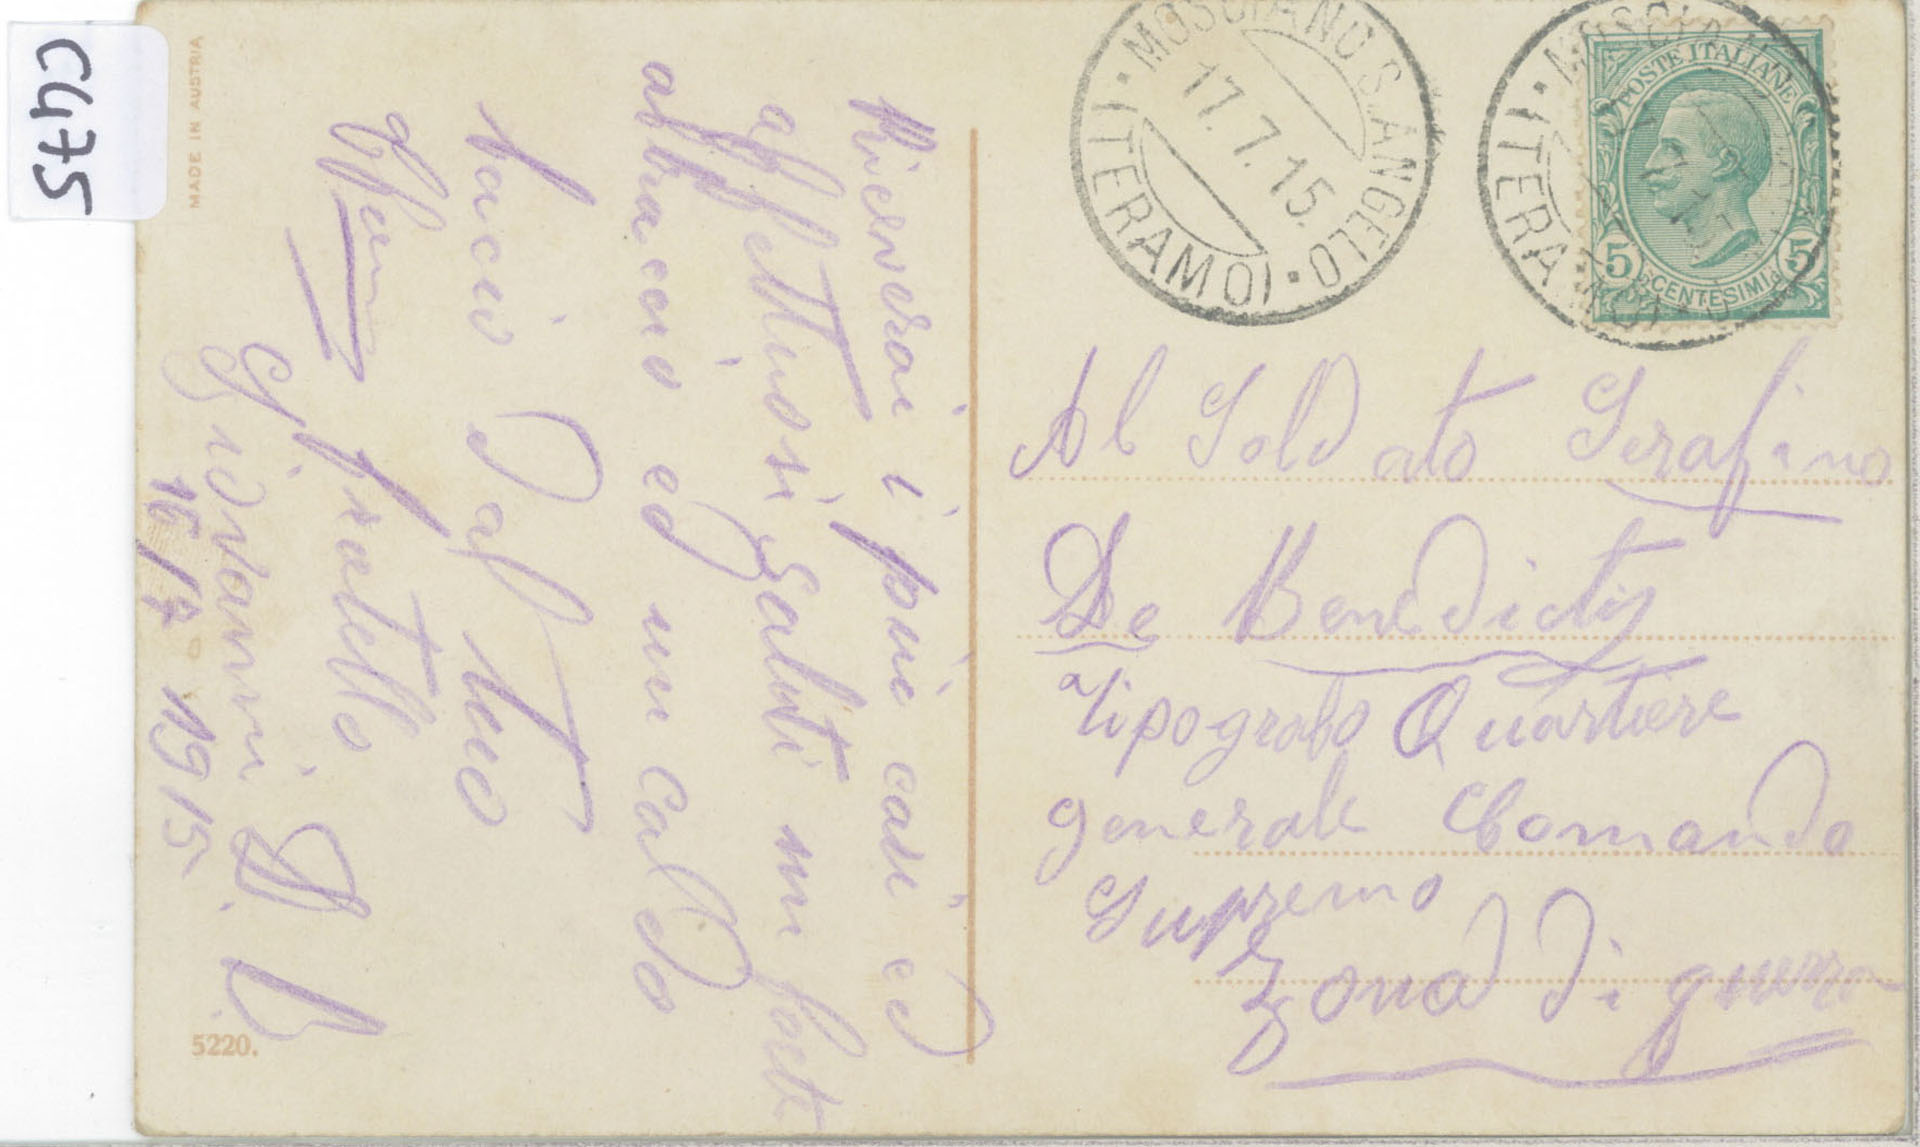 C475
MADE IN AUSTRIA
Riceverai i più cari ed
affettuosi saluti un forte
abbraccio ed un caldo
bacio dal tuo
aff.mo
fratello
Giovanni D. B.
16/7 - 1915
5220.
MOSCIANO S. ANGELO
(TERAMO)
17.7.15.
MOSCIANO
(TERAMO)
POSTE ITALIANE
5 CENTESIMI 5
Al Soldato Serafino
De Benedictis
tipografo Quartiere
generale Comando
Supremo
Zona di guerra